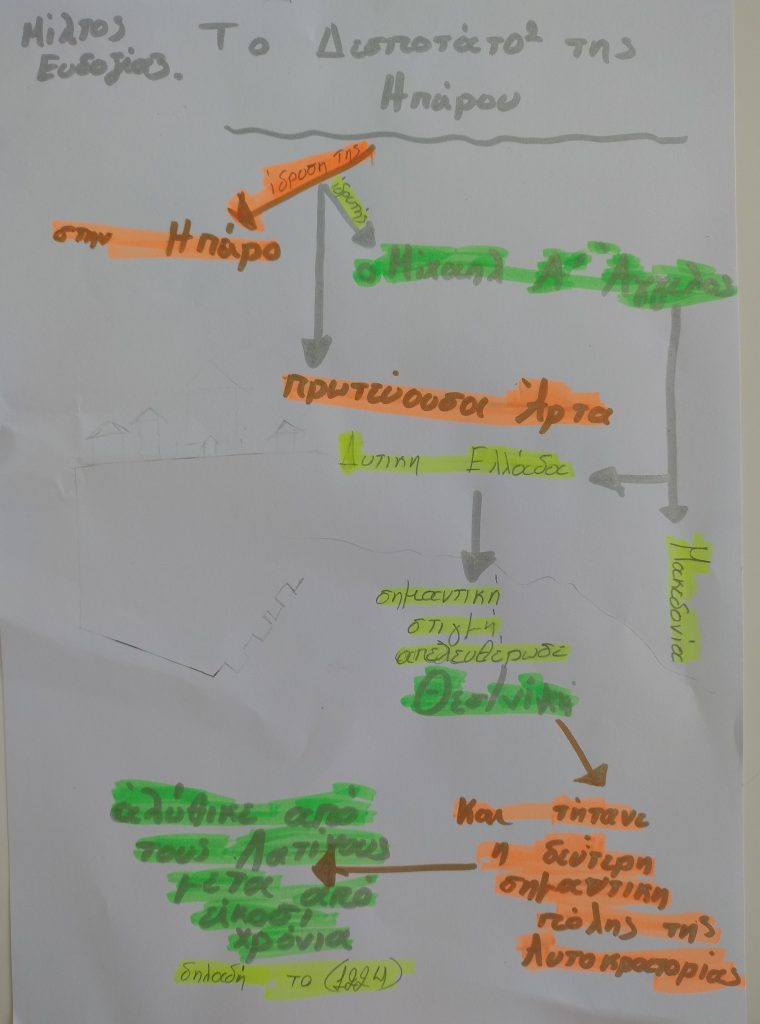 Μίλτος
Ευδοξίας.
Το Δεσποτάτο της
Ηπείρου
ίδρυση της
ιδρυτής
στην Ηπείρο
ο Μιχαήλ Α' Άγγελος
πρωτεύουσα Άρτα
Δυτικη Ελλάδα
Μακεδονία
σημαντική
στιγμή
απελευθέρωσε
Θεσ/νίκη
Και τήτανε
η δεύτερη
σημαντικη
πόλης της
Αυτοκρατορίας
αλώθικε από
τους Λατίνους
μετα από
είκοσι
χρόνια
δηλαδή το (1224)